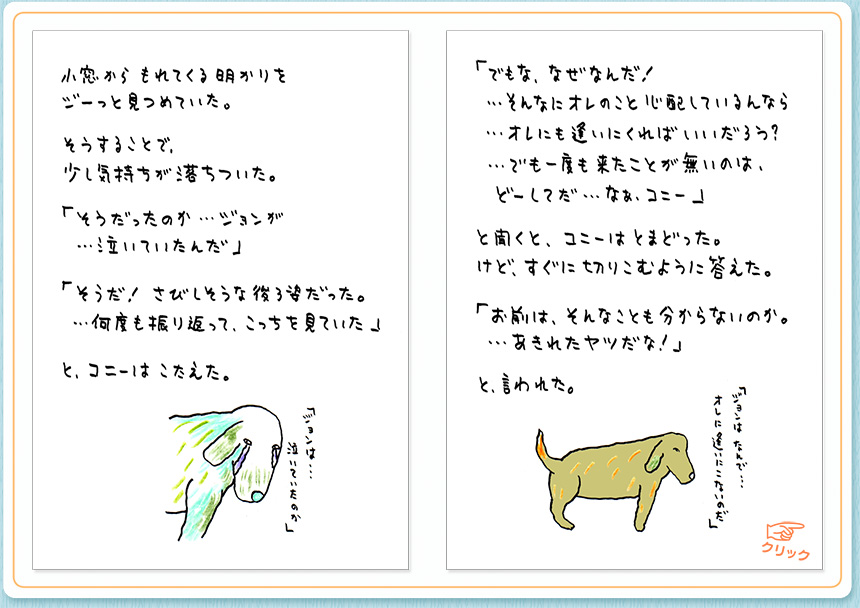 小窓から もれてくる 明かりを
ジーっと見つめていた。
そうすることで、
少し気持ちが落ちついた。
「そうだったのか…ジョンが
…泣いていたんだ」
「そうだ! さびしそうな後ろ姿だった。
…何度も振り返って、こっちを見ていた」
と、コニーは こたえた。
「ジョンは…
泣いていたのか」
「でもな、なぜなんだ!
…そんなにオレのこと心配しているんなら
…オレにも逢いにくればいいだろう?
…でも一度も来たことが無いのは、
どーしてだ…なぁ、コニー」
と聞くと、コニーは とまどった。
けど、すぐに切りこむように答えた。
「お前は、そんなことも分からないのか。
…あきれたヤツだな!」
と、言われた。
「ジョンは なんで…
オレに逢いにこないのだ」
クリック